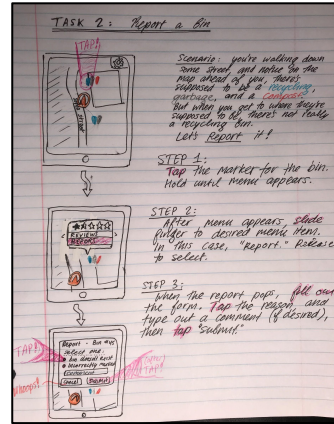 TASK 2: Report a Bin
TAP!
Scenario: you're walking down
some street, and notice on the
map ahead of you, there's
supposed to be a recycling,
garbage, and a compost.
But when you get to where they're
supposed to be, there's not really
a recycling bin.
Let's Report it!
STEP 1:
Tap the marker for the bin.
Hold until menu appears.
REVIEW
REPORT
STEP 2:
After menu appears, slide
finger to desired menu item.
In this case, "Report." Release
to select.
STEP 3:
When the report pops, fill out
the form. Tap the reason, and
type out a comment (if desired),
then tap "submit."
Report - Bin #45
Select one:
Bin doesn't exist
Incorrectly marked
Comment
Cancel Submit
TAP!
whoops!
TAP!